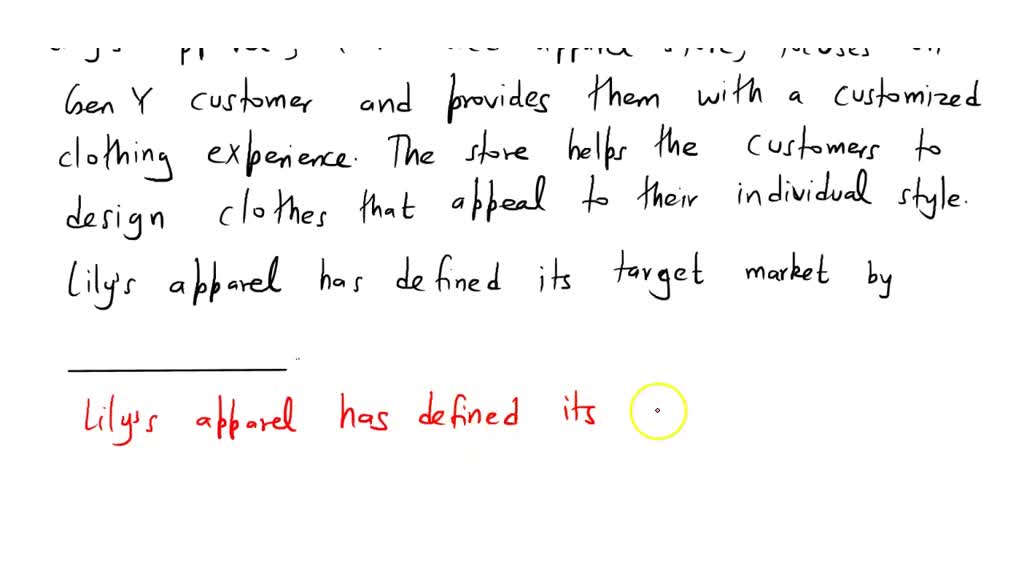 Gen Y customer and provides them with a customized
clothing experience. The store helps the customers to
design clothes that appeal to their individual style.
Lily's apparel has defined its target market by
Lily's apparel has defined its